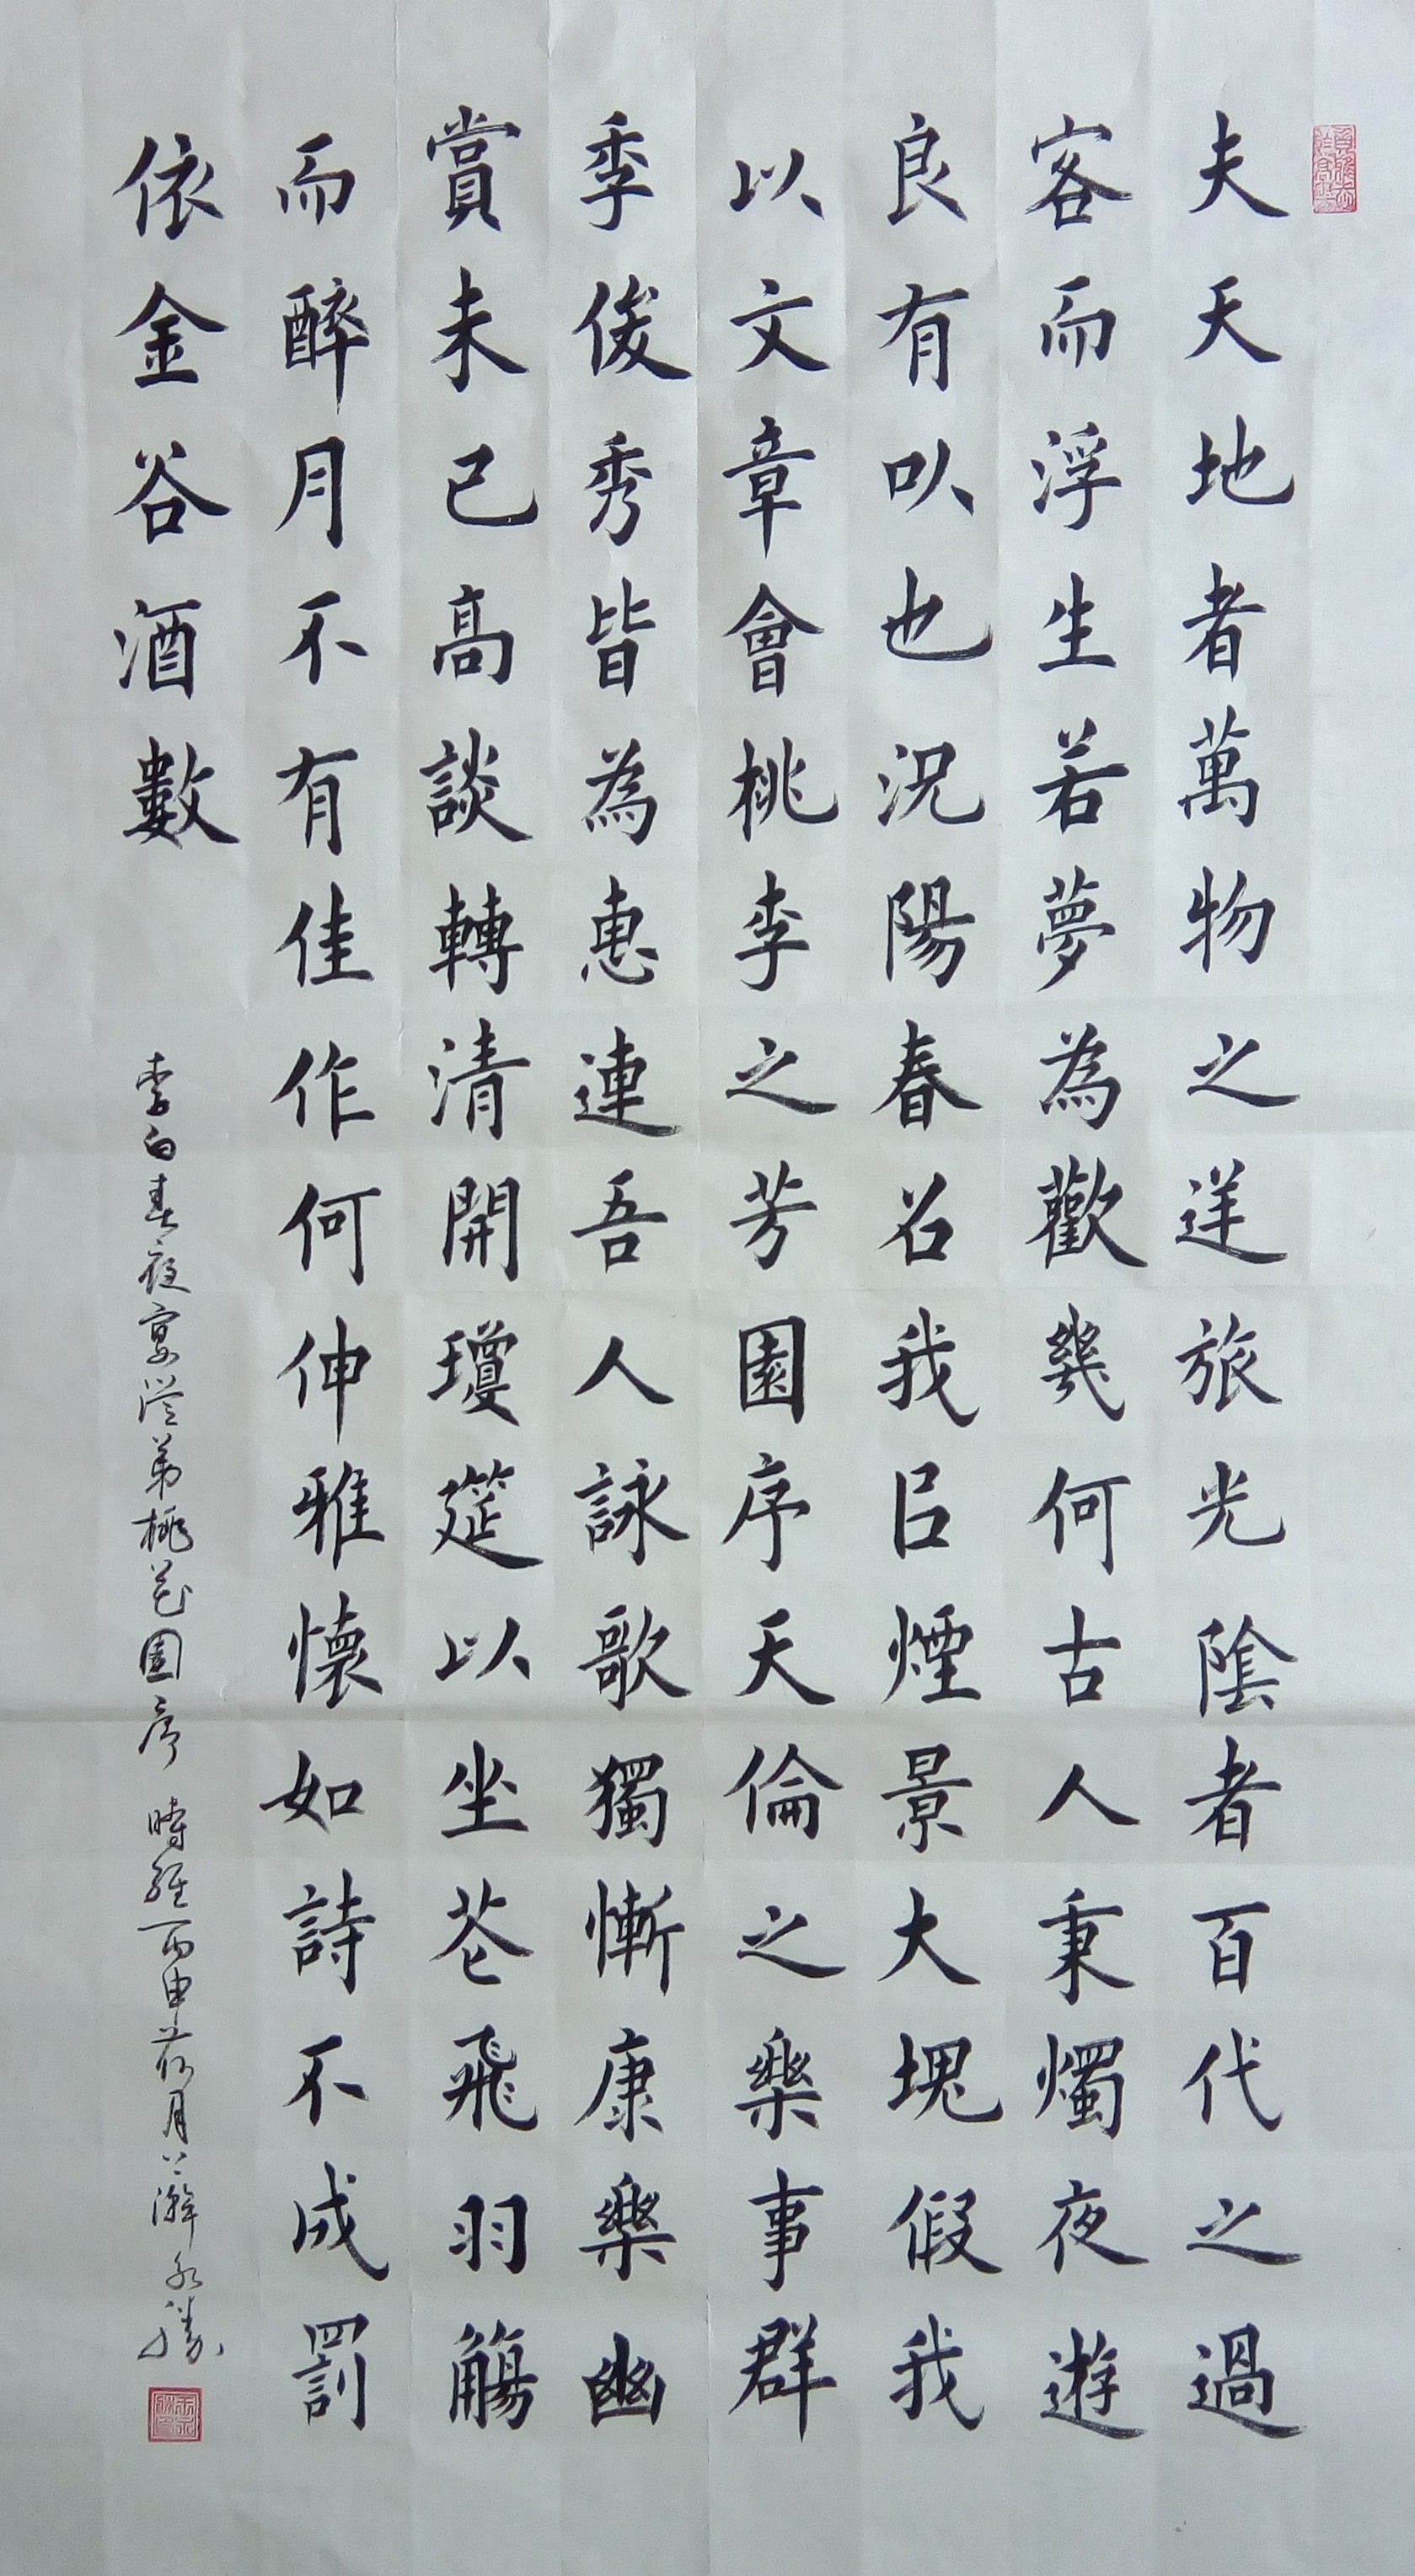 夫天地者萬物之逆旅光陰者百代之過
客而浮生若夢為歡幾何古人秉燭夜遊
良有以也況陽春召我以煙景大塊假我
以文章會桃李之芳園序天倫之樂事群
季俊秀皆為惠連吾人詠歌獨慚康樂幽
賞未已高談轉清開瓊筵以坐花飛羽觴
而醉月不有佳作何伸雅懷如詩不成罰
依金谷酒數
李白春夜宴從弟桃花園序 時維丙申荷月上澣永勝